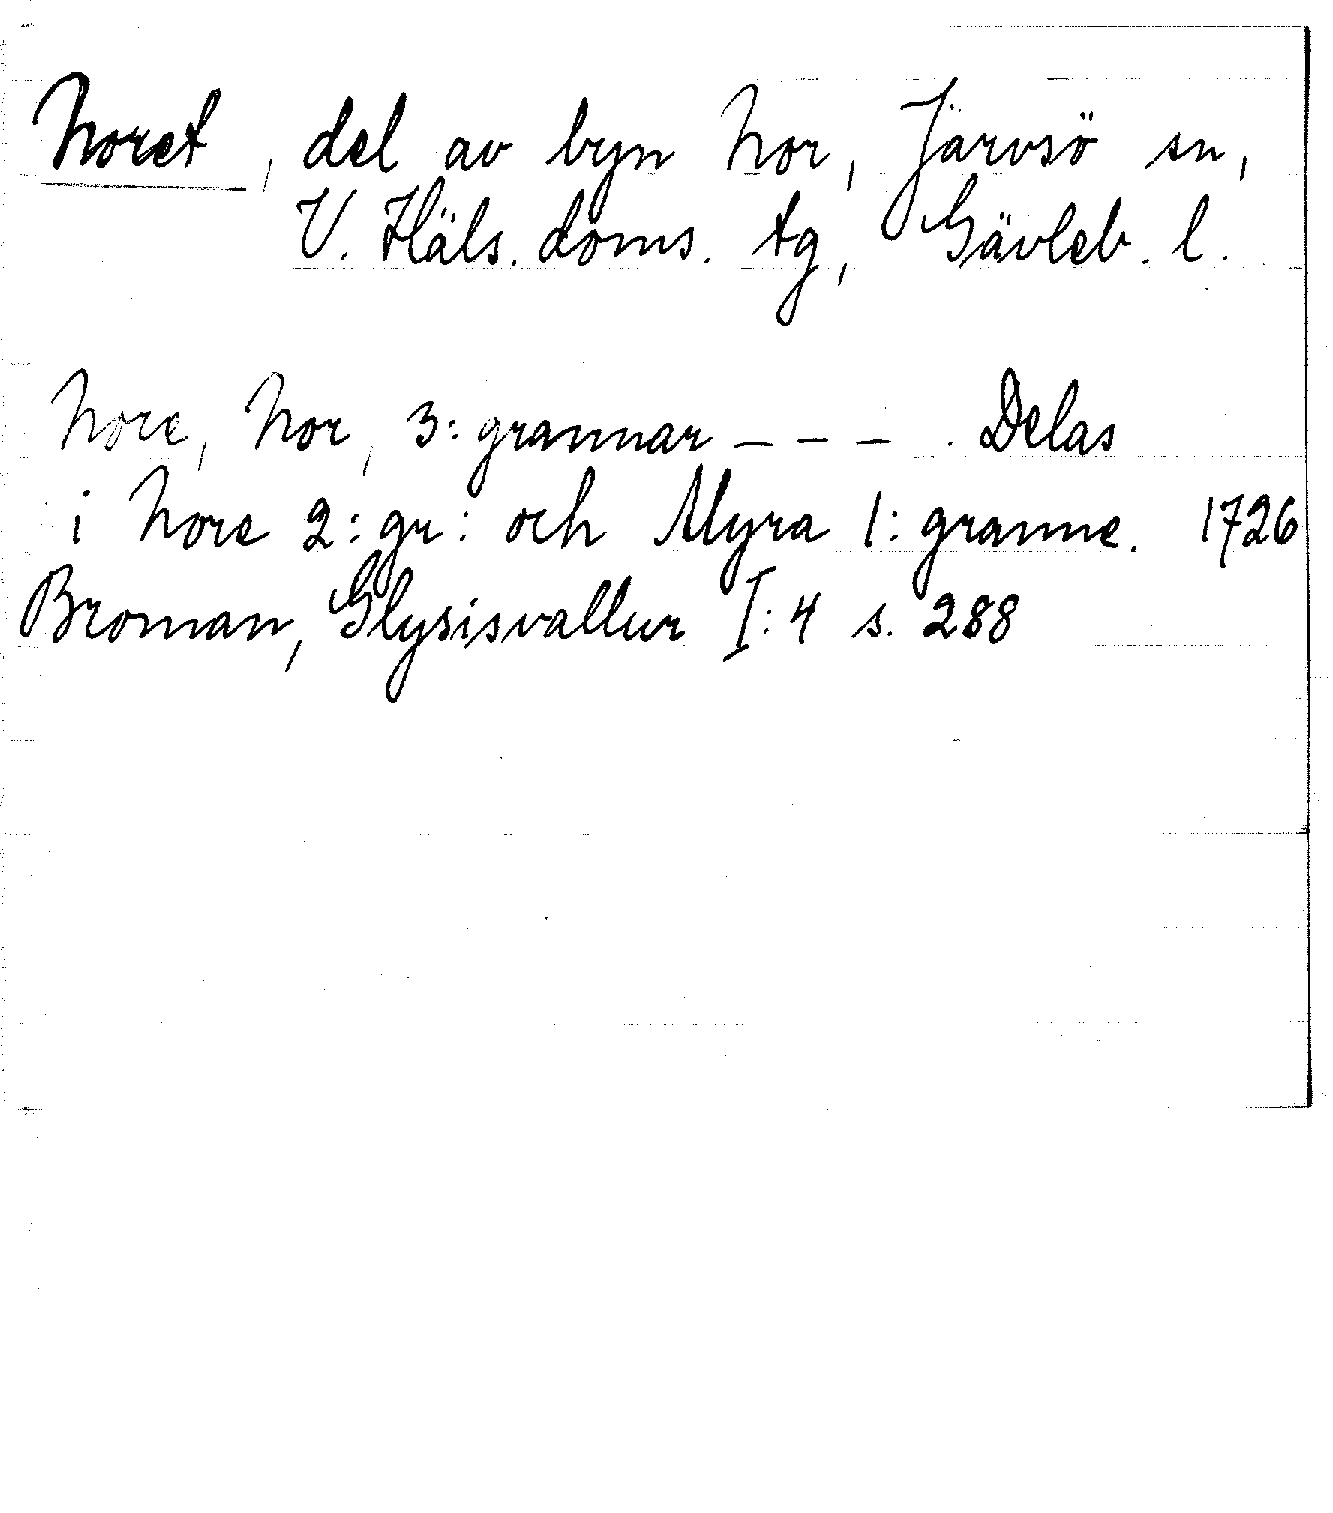 Noret, del av byn Nor, Järvsö sn,
V. Häls. doms. tg, Gävleb. l.
Nore, Nor, 3: grannar – – – . Delas
i Nore 2: gr: och Myra 1: granne. 1726
Broman, Glysisvallur I: 4 s. 288